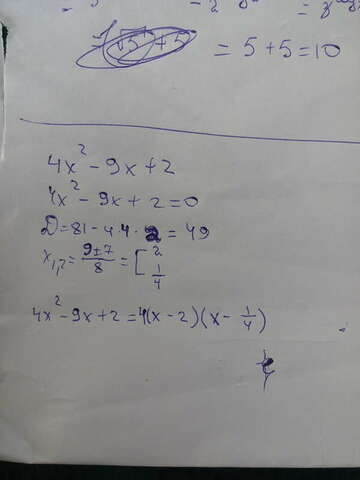 √5 + 5 = 5 + 5 = 10
4x² - 9x + 2
4x² - 9x + 2 = 0
D = 81 - 4·4·2 = 49
x₁,₂ = 9±7/8 = [2 1/4
4x² - 9x + 2 = 4(x - 2)(x - 1/4)